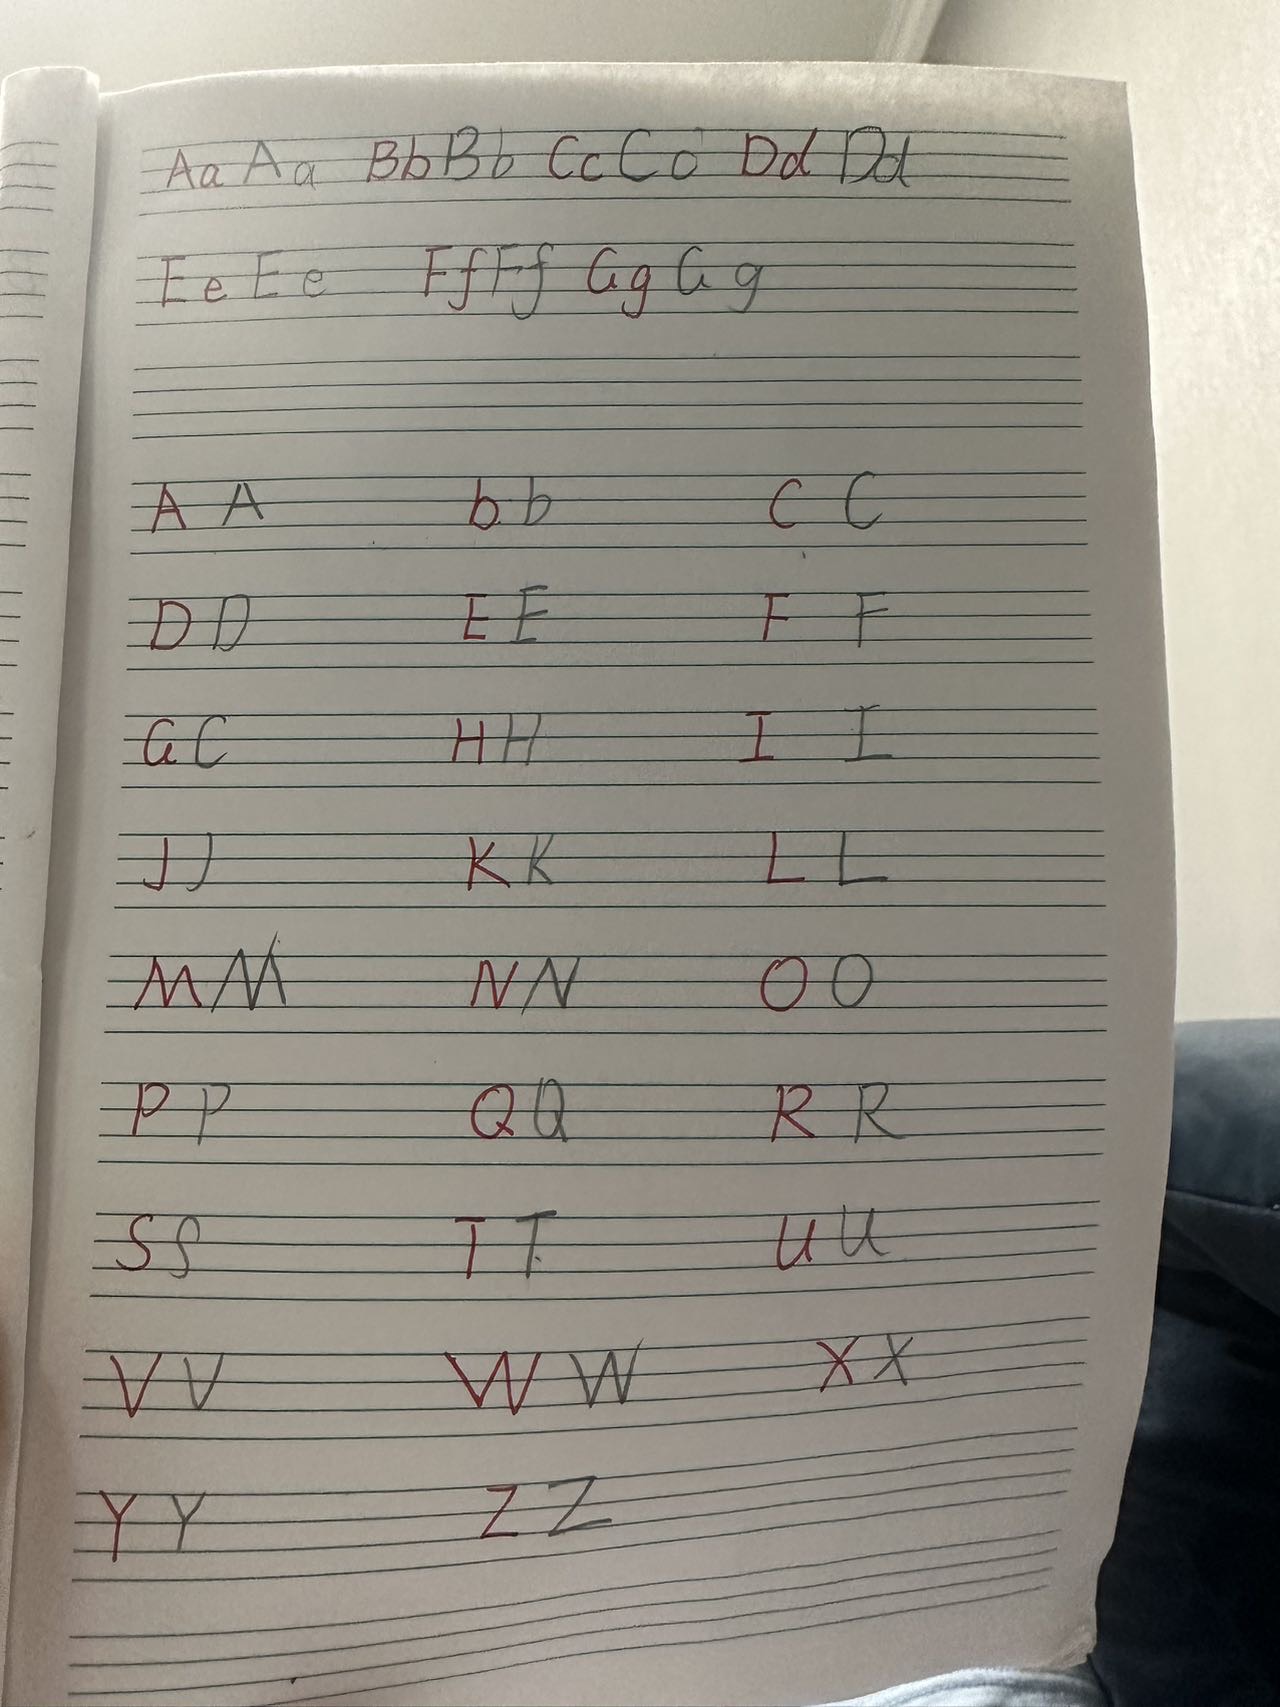 Aa A a Bb B b Cc C c Dd D d
E e E e F f F f G g G g
A A b b C C
D D E E F F
G C H H I I
J J K K L L
M M N N O O
P P Q Q R R
S S T T U U
V V W W X X
Y Y Z Z